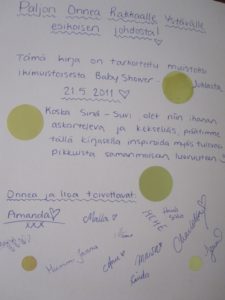 Paljon Onnea Rakkaalle Ystävälle
esikoisen johdosta!
Tämä kirja on tarkoitettu muistoksi
ikimuistoisesta BabyShower- Juhlasta
21.5.2011
Koska Sinä - Suvi olet niin ihanan
askarteleva ja kekseliäs, päätimme
tällä kirjasella inspiroida myös tulevaa
pikkuista samanmoisen luovuuteen
Onnea ja iloa toivottavat:
Amanda
xxx
Malla
Hanna
Marika
Charlotta